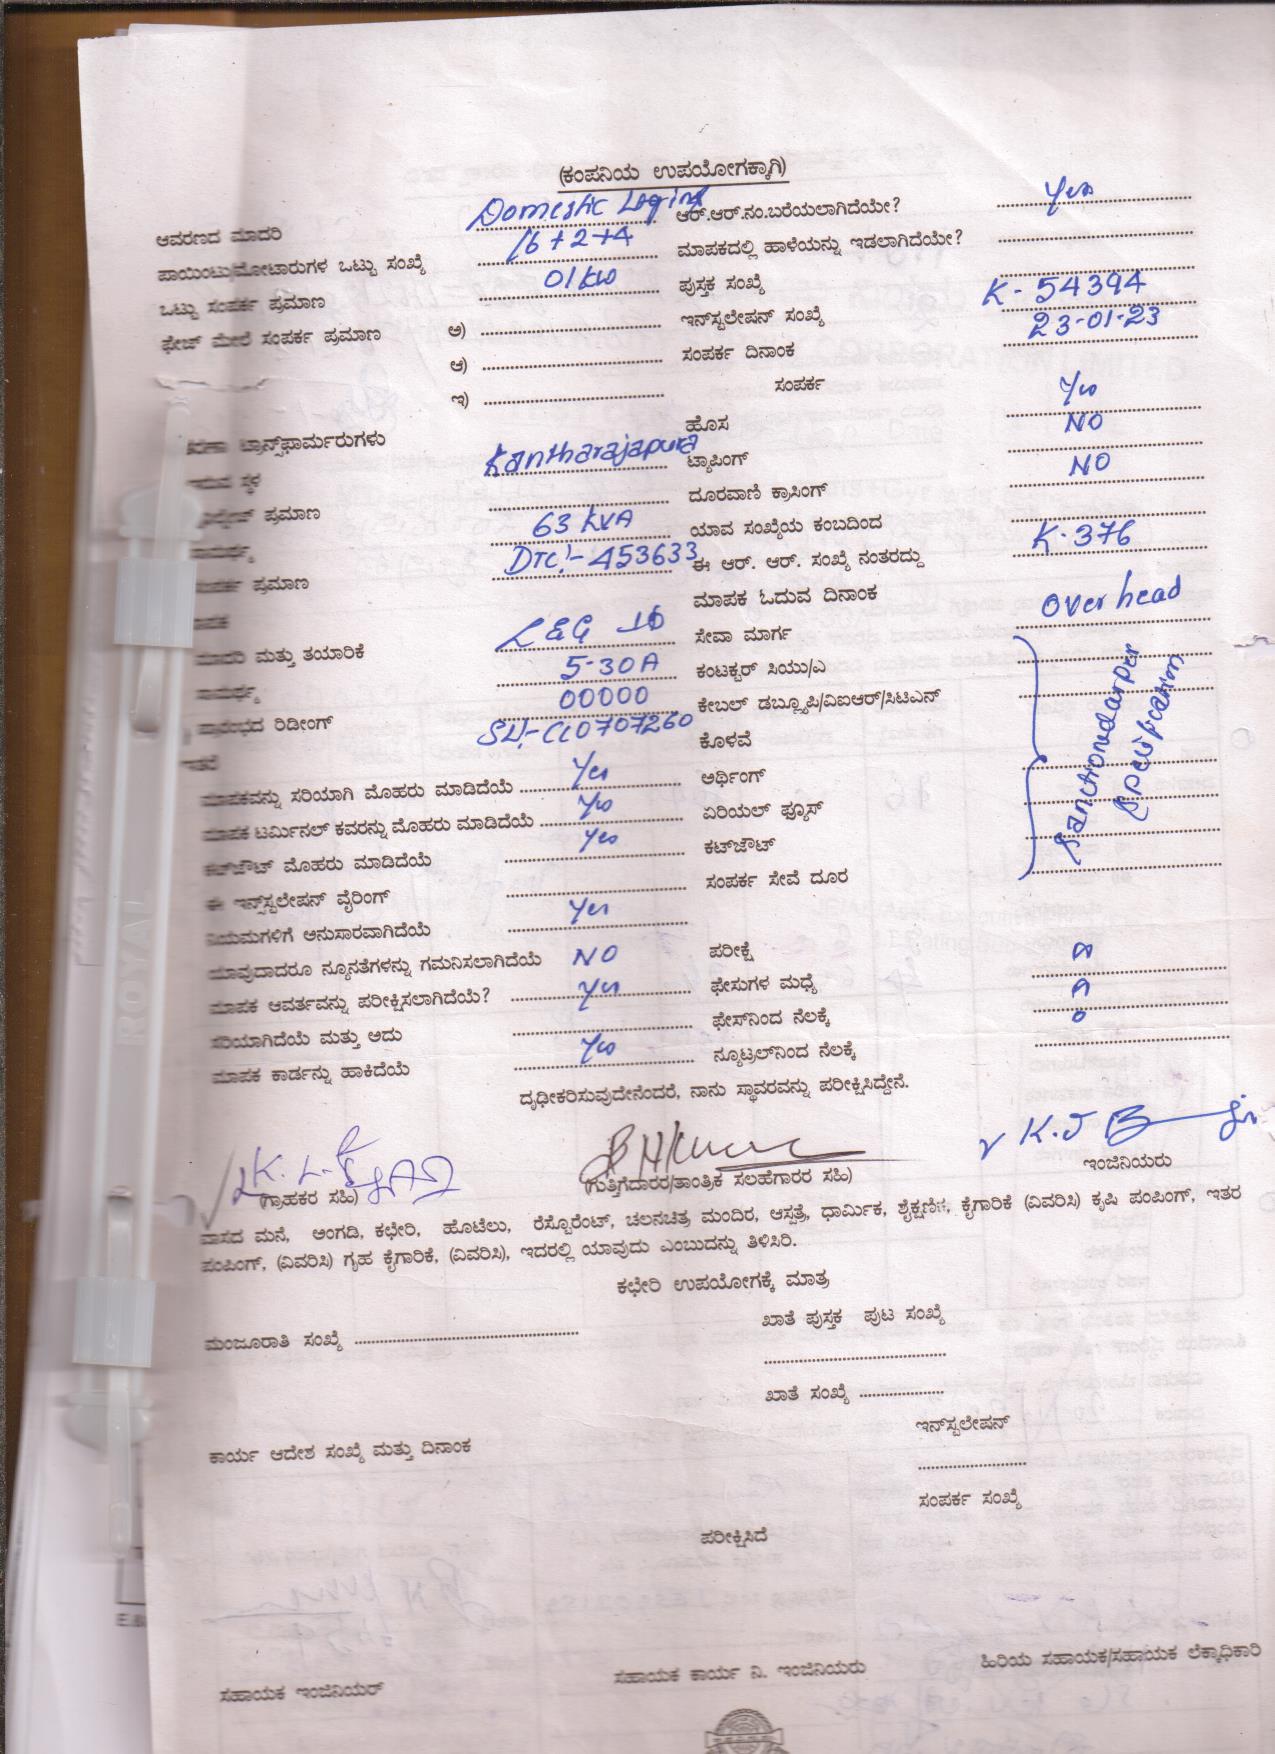 (ಕಂಪನಿಯ ಉಪಯೋಗಕ್ಕಾಗಿ)
ಆವರಣದ ಮಾದರಿ Domestic ಆರ್.ಆರ್.ನಂ.ಬರೆಯಲಾಗಿದೆಯೇ? Yes
ಪಾಯಿಂಟು/ಮೋಟಾರುಗಳ ಒಟ್ಟು ಸಂಖ್ಯೆ 16+2+4 ಮಾಪಕದಲ್ಲಿ ಹಾಳೆಯನ್ನು ಇಡಲಾಗಿದೆಯೇ?
ಒಟ್ಟು ಸಂಪರ್ಕ ಪ್ರಮಾಣ 01kw ಪುಸ್ತಕ ಸಂಖ್ಯೆ
ಫೇಜ್ ಮೇರೆ ಸಂಪರ್ಕ ಪ್ರಮಾಣ ಅ) ಇನ್‌ಸ್ಟಲೇಷನ್ ಸಂಖ್ಯೆ K-54394
ಆ) ಸಂಪರ್ಕ ದಿನಾಂಕ 23-01-23
ಇ) ಸಂಪರ್ಕ
ಟ್ರಾನ್ಸ್‌ಫಾರ್ಮರುಗಳು ಹೊಸ Yes
ಸ್ಥಳ Kantharajapura ಟ್ಯಾಪಿಂಗ್ NO
ಪ್ರಮಾಣ ದೂರವಾಣಿ ಕ್ರಾಸಿಂಗ್ NO
ಸಾಮರ್ಥ್ಯ 63 kVA ಯಾವ ಸಂಖ್ಯೆಯ ಕಂಬದಿಂದ
ಸಂಪರ್ಕ ಪ್ರಮಾಣ DTC:- 453633 ಈ ಆರ್. ಆರ್. ಸಂಖ್ಯೆ ನಂತರದ್ದು K-376
ಮಾಪಕ ಮಾಪಕ ಓದುವ ದಿನಾಂಕ
ಮಾದರಿ ಮತ್ತು ತಯಾರಿಕೆ L&G ಸೇವಾ ಮಾರ್ಗ Over head
ಸಾಮರ್ಥ್ಯ 5-30A ಕಂಟಕ್ಟರ್ ಸಿಯು/ಎ
ಪ್ರಾರಂಭದ ರಿಡೀಂಗ್ 00000 ಕೇಬಲ್ ಡಬ್ಲ್ಯೂಪಿ/ವಿಐಆರ್/ಸಿಟಿಎನ್
ಇತರೆ ಕೊಳವೆ
ಮಾಪಕವನ್ನು ಸರಿಯಾಗಿ ಮೊಹರು ಮಾಡಿದೆಯೆ Yes ಅರ್ಥಿಂಗ್
ಮಾಪಕ ಟರ್ಮಿನಲ್ ಕವರನ್ನು ಮೊಹರು ಮಾಡಿದೆಯೆ Yes ಏರಿಯಲ್ ಫ್ಯೂಸ್
ಕಟ್‌ಔಟ್ ಮೊಹರು ಮಾಡಿದೆಯೆ Yes ಕಟ್‌ಔಟ್
ಈ ಇನ್ಸ್‌ಸ್ಟಲೇಷನ್ ವೈರಿಂಗ್ ಸಂಪರ್ಕ ಸೇವೆ ದೂರ
ನಿಯಮಗಳಿಗೆ ಅನುಸಾರವಾಗಿದೆಯೆ Yes
ಯಾವುದಾದರೂ ನ್ಯೂನತೆಗಳನ್ನು ಗಮನಿಸಲಾಗಿದೆಯೆ NO ಪರೀಕ್ಷೆ
ಮಾಪಕ ಆವರ್ತವನ್ನು ಪರೀಕ್ಷಿಸಲಾಗಿದೆಯೆ? Yes ಫೇಸುಗಳ ಮಧ್ಯೆ
ಸರಿಯಾಗಿದೆಯೆ ಮತ್ತು ಅದು ಫೇಸ್‌ನಿಂದ ನೆಲಕ್ಕೆ
ಮಾಪಕ ಕಾರ್ಡನ್ನು ಹಾಕಿದೆಯೆ Yes ನ್ಯೂಟ್ರಲ್‌ನಿಂದ ನೆಲಕ್ಕೆ
ದೃಢೀಕರಿಸುವುದೇನೆಂದರೆ, ನಾನು ಸ್ಥಾವರವನ್ನು ಪರೀಕ್ಷಿಸಿದ್ದೇನೆ.
(ಗ್ರಾಹಕರ ಸಹಿ) (ಗುತ್ತಿಗೆದಾರರ/ತಾಂತ್ರಿಕ ಸಲಹೆಗಾರರ ಸಹಿ) ಇಂಜಿನಿಯರು
ವಾಸದ ಮನೆ, ಅಂಗಡಿ, ಕಛೇರಿ, ಹೊಟೆಲು, ರೆಸ್ಟೊರೆಂಟ್, ಚಲನಚಿತ್ರ ಮಂದಿರ, ಆಸ್ಪತ್ರೆ, ಧಾರ್ಮಿಕ, ಶೈಕ್ಷಣಿಕ, ಕೈಗಾರಿಕೆ (ವಿವರಿಸಿ) ಕೃಷಿ ಪಂಪಿಂಗ್, ಇತರ
ಪಂಪಿಂಗ್, (ವಿವರಿಸಿ) ಗೃಹ ಕೈಗಾರಿಕೆ, (ವಿವರಿಸಿ), ಇದರಲ್ಲಿ ಯಾವುದು ಎಂಬುದನ್ನು ತಿಳಿಸಿರಿ.
ಕಛೇರಿ ಉಪಯೋಗಕ್ಕೆ ಮಾತ್ರ
ಮಂಜೂರಾತಿ ಸಂಖ್ಯೆ ಖಾತೆ ಪುಸ್ತಕ ಪುಟ ಸಂಖ್ಯೆ
ಖಾತೆ ಸಂಖ್ಯೆ
ಕಾರ್ಯ ಆದೇಶ ಸಂಖ್ಯೆ ಮತ್ತು ದಿನಾಂಕ ಇನ್‌ಸ್ಟಲೇಷನ್
ಸಂಪರ್ಕ ಸಂಖ್ಯೆ
ಪರೀಕ್ಷಿಸಿದೆ
ಸಹಾಯಕ ಇಂಜಿನಿಯರ್ ಸಹಾಯಕ ಕಾರ್ಯ ನಿ. ಇಂಜಿನಿಯರು ಹಿರಿಯ ಸಹಾಯಕ/ಸಹಾಯಕ ಲೆಕ್ಕಾಧಿಕಾರಿ
ROYAL